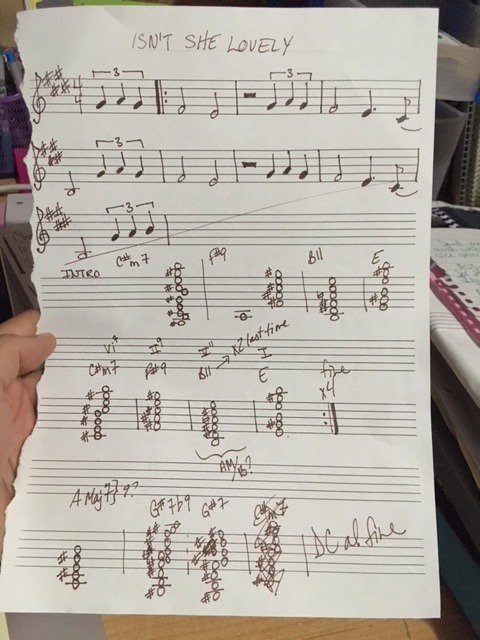 ISN'T SHE LOVELY
3 3
4
4
3 3
3
INTRO C#m7 F#9 B11 E
vi7 II9 II11 x2 last time I
C#m7 F#9 B11 E x4 fine
A Maj7}?? AM/B?
G#7b9 G#7 C#m7 DC al fine